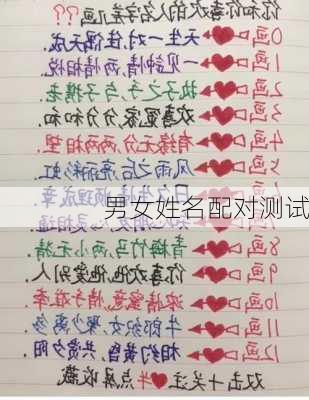 你和你喜欢的人名字差几画??
0画 天生一对,佳偶天成.
1画 一见钟情,两情相悦.
2画 执子之手,与子携老.
3画 欢喜冤家,分分和和.
4画 有缘无分,两两相望.
5画 风雨之后,亮丽彩虹.
6画 日久生情,顺理成章
男女姓名配对测试
7画
8画 青梅竹马,两小无猜.
9画 你喜欢他,他爱别人.
10画 浓情蜜意,情 难牵.
11画 牛郎织女,聚少离多
12画 相约黄昏,共赏夕阳.
双击+关注 收藏